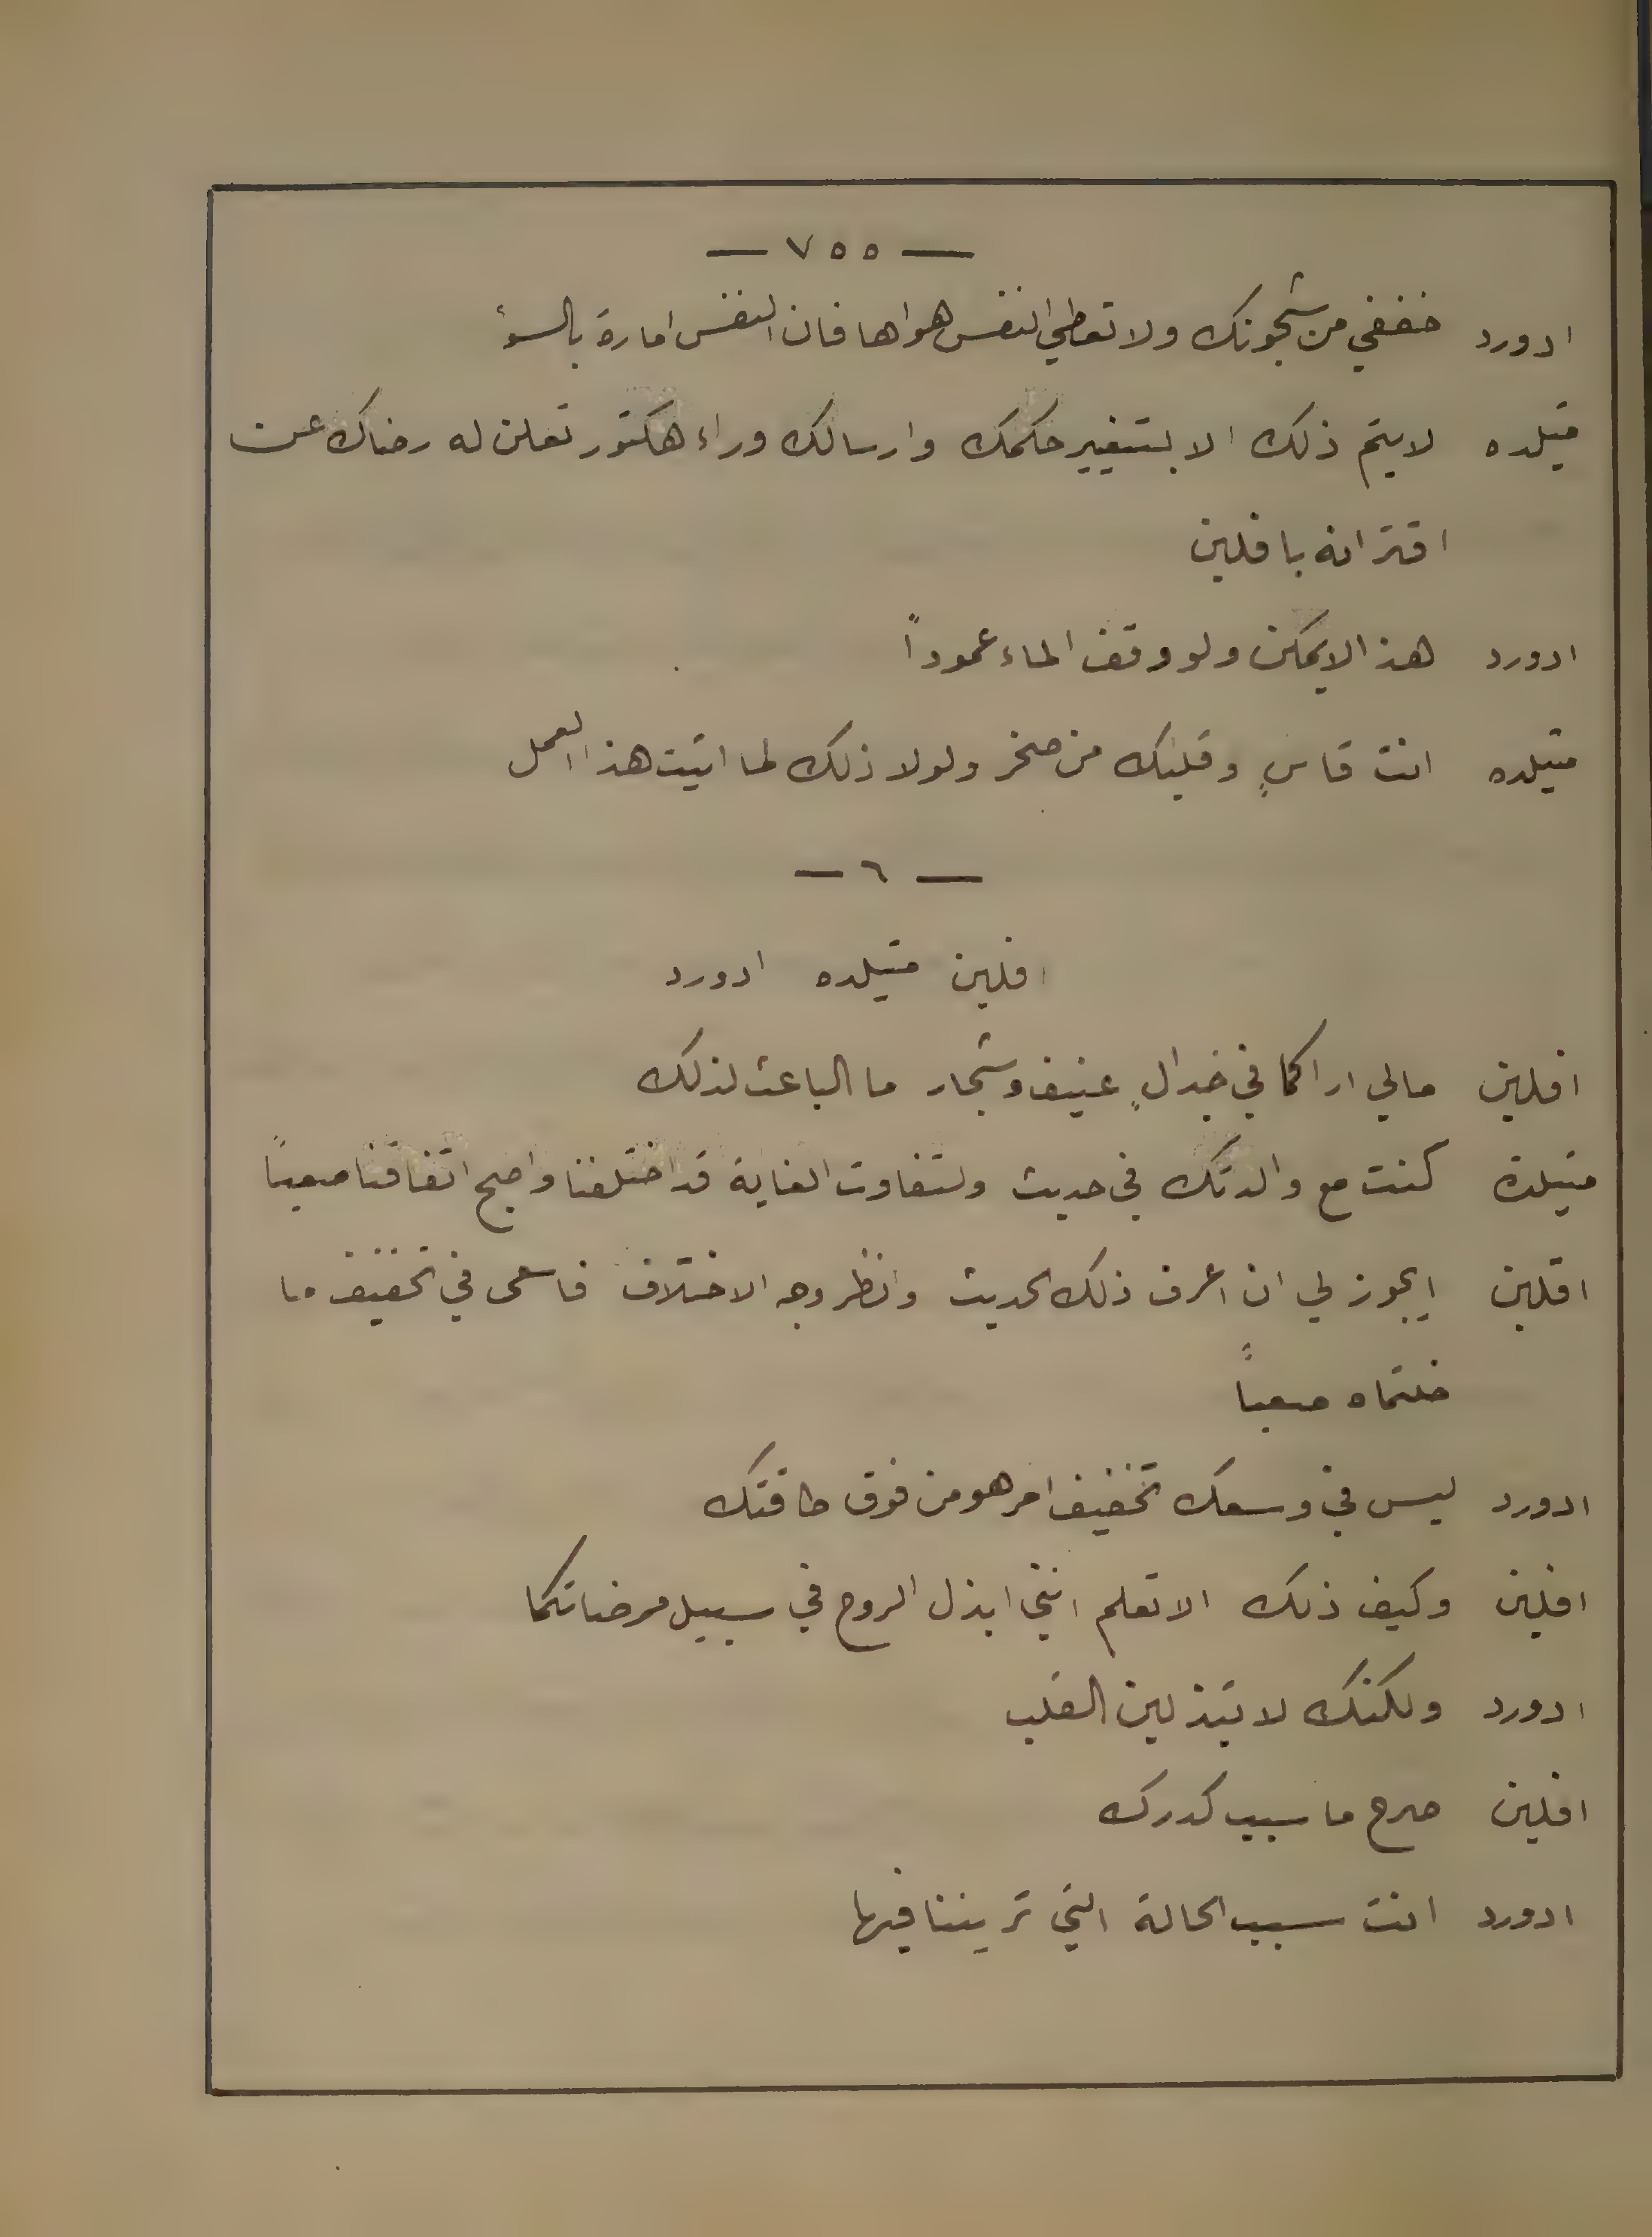 — ٧٥٥ —
ادورد خففي من شجونك ولا تعطي النفس هواها فان النفس امارة بالسوء
متيلده لا يتم ذلك الا بتغيير حكمك وارسالك وراء هكتور تعلن له رضاك عن
اقترانه بافلين
ادورد هذا لا يمكن ولو وقف الماء عموداً
متيلده انت قاسٍ وقلبك من صخر ولولا ذلك لما اتيت هذا العمل
— ٦ —
افلين متيلده ادورد
افلين مالي اراكما في جدالٍ عنيف وشجار ما الباعث لذلك
متيلدة كنت مع والدتك في حديث ولتفاوت الغاية قد اختلفنا واصبح اتفاقنا صعباً
افلين ايجوز لي ان اعرف ذلك الحديث وانظر وجه الاختلاف فاسعى في تخفيف ما
خلتماه صعباً
ادورد ليس في وسعك تخفيف امر هو من فوق طاقتك
افلين وكيف ذلك الا تعلم انني ابذل الروح في سبيل مرضاتكما
ادورد ولكنك لا تبذلين القلب
افلين صرح ما سبب كدرك
ادورد انت سبب الحالة التي تريننا فيها